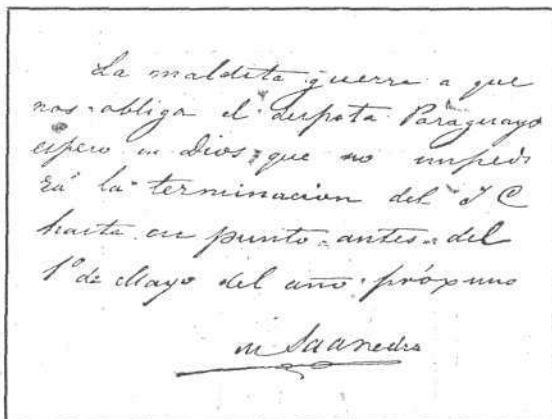 La maldita guerra a que
nos obliga el despota Paraguayo
espero en Dios que no impedi
rá la terminacion del F C
hasta en punto antes del
1º de Mayo del año próximo
M Saavedra